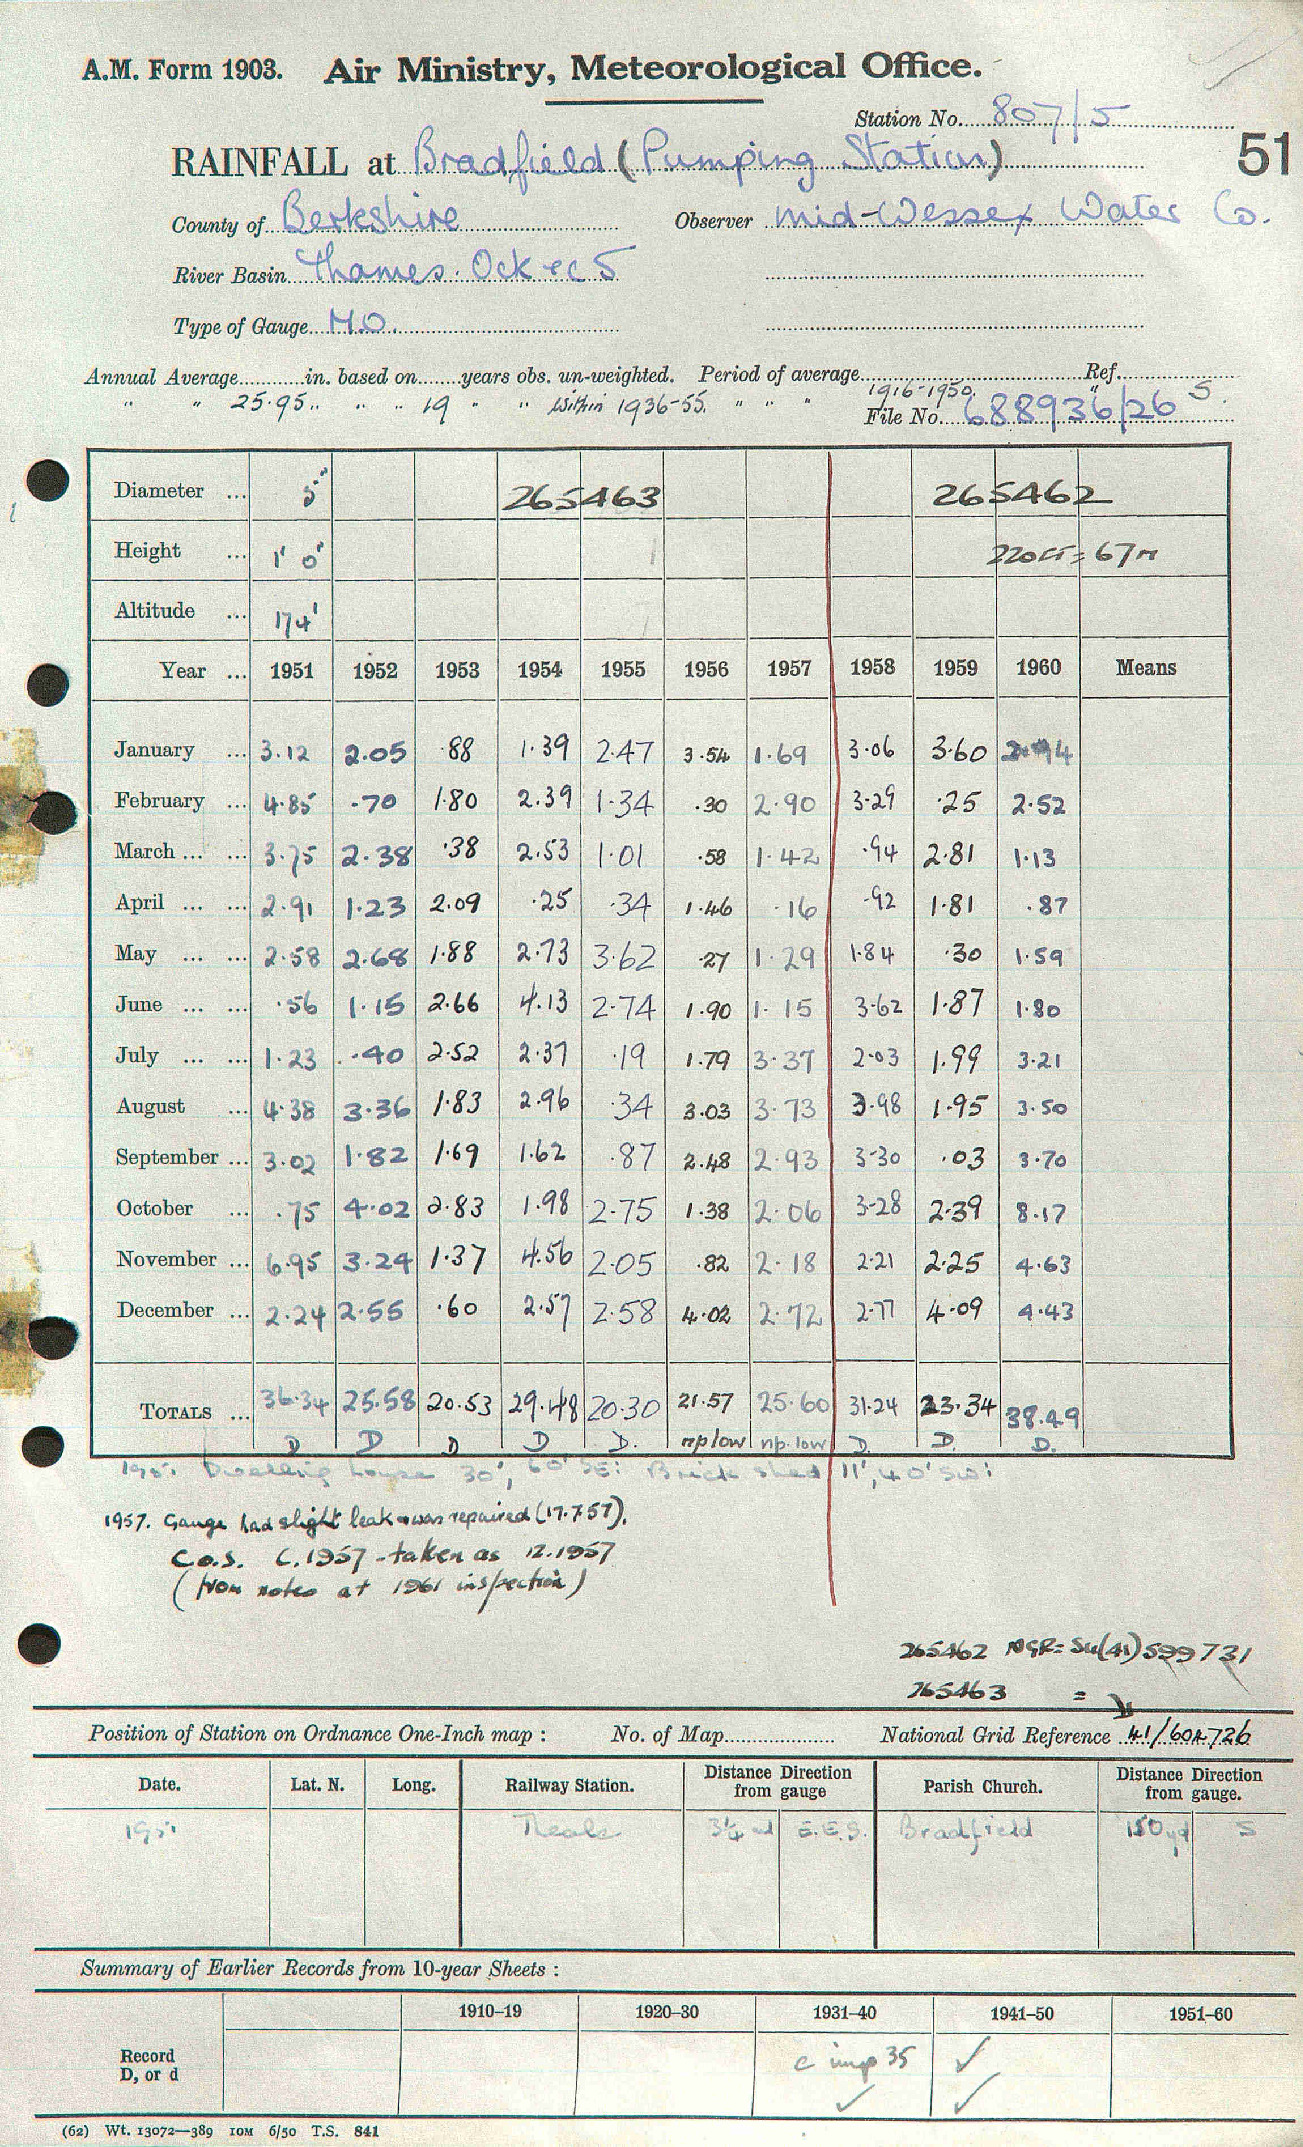 A.M. Form 1903. Air Ministry, Meteorological Office.
Station No. 807/5
51
RAINFALL at Bradfield (Pumping Station)
County of Berkshire Observer Mid-Wessex Water Co.
River Basin Thames. Ock etc 5
Type of Gauge M.O.
Annual Average............in. based on........years obs. un-weighted. Period of average............Ref.
" " 25.95 " " " 19 " " Within 1936-55. " " " 1916-1950. " S.
File No. 688936/26
Diameter ... 5" 265463 265462
Height ... 1' 0" 220ft = 67m
Altitude ... 174'
Year ... 1951 1952 1953 1954 1955 1956 1957 1958 1959 1960 Means
January ... 3.12 2.05 .88 1.39 2.47 3.54 1.69 3.06 3.60 2.94
February ... 4.85 .70 1.80 2.39 1.34 .30 2.90 3.29 .25 2.52
March ... ... 3.75 2.38 .38 2.53 1.01 .58 1.42 .94 2.81 1.13
April ... ... 2.91 1.23 2.09 .25 .34 1.46 .16 .92 1.81 .87
May ... ... 2.58 2.68 1.88 2.73 3.62 .27 1.29 1.84 .30 1.59
June ... ... .56 1.15 2.66 4.13 2.74 1.90 1.15 3.62 1.87 1.80
July ... ... 1.23 .40 2.52 2.37 .19 1.79 3.37 2.03 1.99 3.21
August ... 4.38 3.36 1.83 2.96 .34 3.03 3.73 3.98 1.95 3.50
September ... 3.02 1.82 1.69 1.62 .87 2.48 2.93 3.30 .03 3.70
October ... .75 4.02 2.83 1.98 2.75 1.38 2.06 3.28 2.39 8.17
November ... 6.95 3.24 1.37 4.56 2.05 .82 2.18 2.21 2.25 4.63
December ... 2.24 2.55 .60 2.57 2.58 4.02 2.72 2.77 4.09 4.43
TOTALS ... 36.34 25.58 20.53 29.48 20.30 21.57 25.60 31.24 23.34 38.49
D D D D D. np low np. low D. D. D.
1951. Dwelling house 30', 60' SE: Brick shed 11', 40' SW:
1957. Gauge had slight leak & was repaired (17.7.57).
C.O.S. C.1957 - taken as 12.1957
(from notes at 1961 inspection)
265462 NGR = SU(41) 599731
265463 =
Position of Station on Ordnance One-Inch map : No. of Map.................... National Grid Reference 41/604726
Date. Lat. N. Long. Railway Station. Distance Direction from gauge Parish Church. Distance Direction from gauge.
1951 Theale 3¼ E.E.S. Bradfield 150yd S
Summary of Earlier Records from 10-year Sheets :
1910–19 1920–30 1931–40 1941–50 1951–60
Record D, or d c imp 35 ✓
✓ ✓
(62) Wt. 13072—389 10M 6/50 T.S. 841